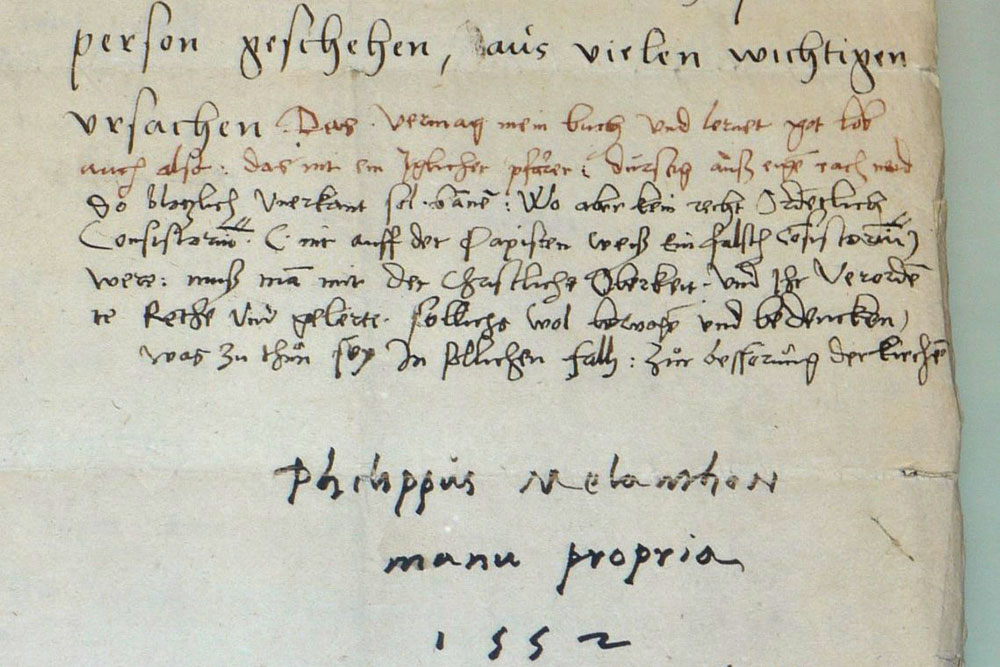 person geschehen, aus vielen wichtigen
vrsachen. Das vermag mein buch vnd lernet got lob
auch also: das nit ein Iglicher pfarer
So vnerkant sol: Wo aber kein recht Ordenlich
Consistoriu̅ (nit auff der Papisten weiß Ein falsch Co̅sistoriu̅)
were: muß ma̅ mit der Christliche̅ Oberkeit vnd Ihr Verorde̅
te Rethe vnd gelerte sollichs wol vnd bedencken,
was zu thůn sey In sollichen fall: Zůr besserůng der kirche̅
Philippus Melanthon
manu propria
1552